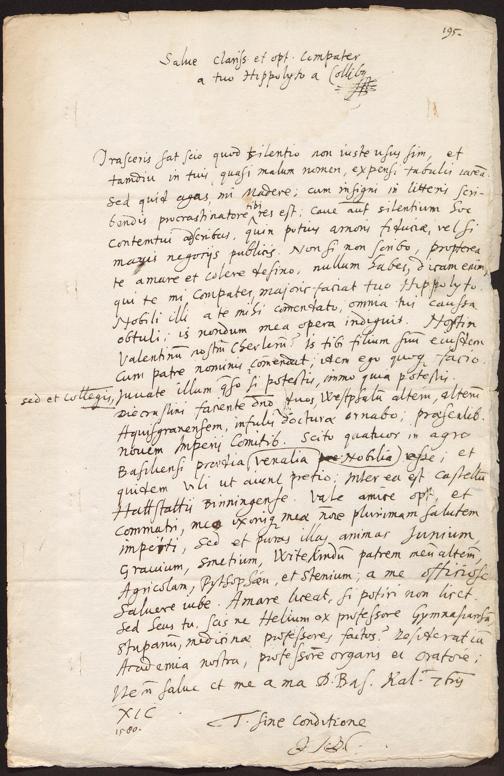 195.
Salve Clariss. et opt. Compater
a tuo Hippolyto a Collibus
Irasceris sat scio quod silentio non iuste usus sim, et
tamdiu in tuis quasi malum nomen, expensi tabulis
sed quid agas, mi; cum insigni in litteris scri-
bendis procrastinatore tibi res est: cave aut silentium hoc
contemtui adscribas, quin potius amoris fiduciae, vel si
mavis negotijs publicis. Non si non scribo, propterea
te amare et colere desino, nullum habes, dicam enim,
qui te mi Compater, majoris faciat tuo Hippolyto.
Nobili illi a te mihi comendato, omnia tui caussa
obtuli; is nondum mea opera indiguit. Nostin
Valentinum nostrum Cherlerum? Is tibi filium suum eiusdem
cum patre nominis comendat; idem ego quoq facio.
sed et Collegis, Juvate illum qso si potestis, immo quia potestis.
Die crastini favente dno duos, Westphalum alterum, alterum
Aquisgranensem, infulis docturae ornabo; praesentib.
novem Imperij Comitib. Scito quatuor in agro
Basiliensi praedia (venalia Nobilia) esse; et
quidem vili ut aiunt pretio; inter ea est Castellum
Hattstattij Binningense. Vale amice opt. et
Commatri, meo uxorisq meae nore plurimam salutem
imperti, sed et puras illas animas Junium,
Gravium, Smetium, Witekindum patrem meum alterum,
Agricolam, Pythopoeum, et Stenium; a me officiose
salvere iube. Amare liceat, si potiri non licet.
Sed heus tu, scis ne Helium ex professore
Stupanum, medicinae professores factos?
Academia nostra, professore organi ex oratore;
Iterum salve et me ama D. Bas. Kal. 7bris
XIC
1580.
T. sine conditione